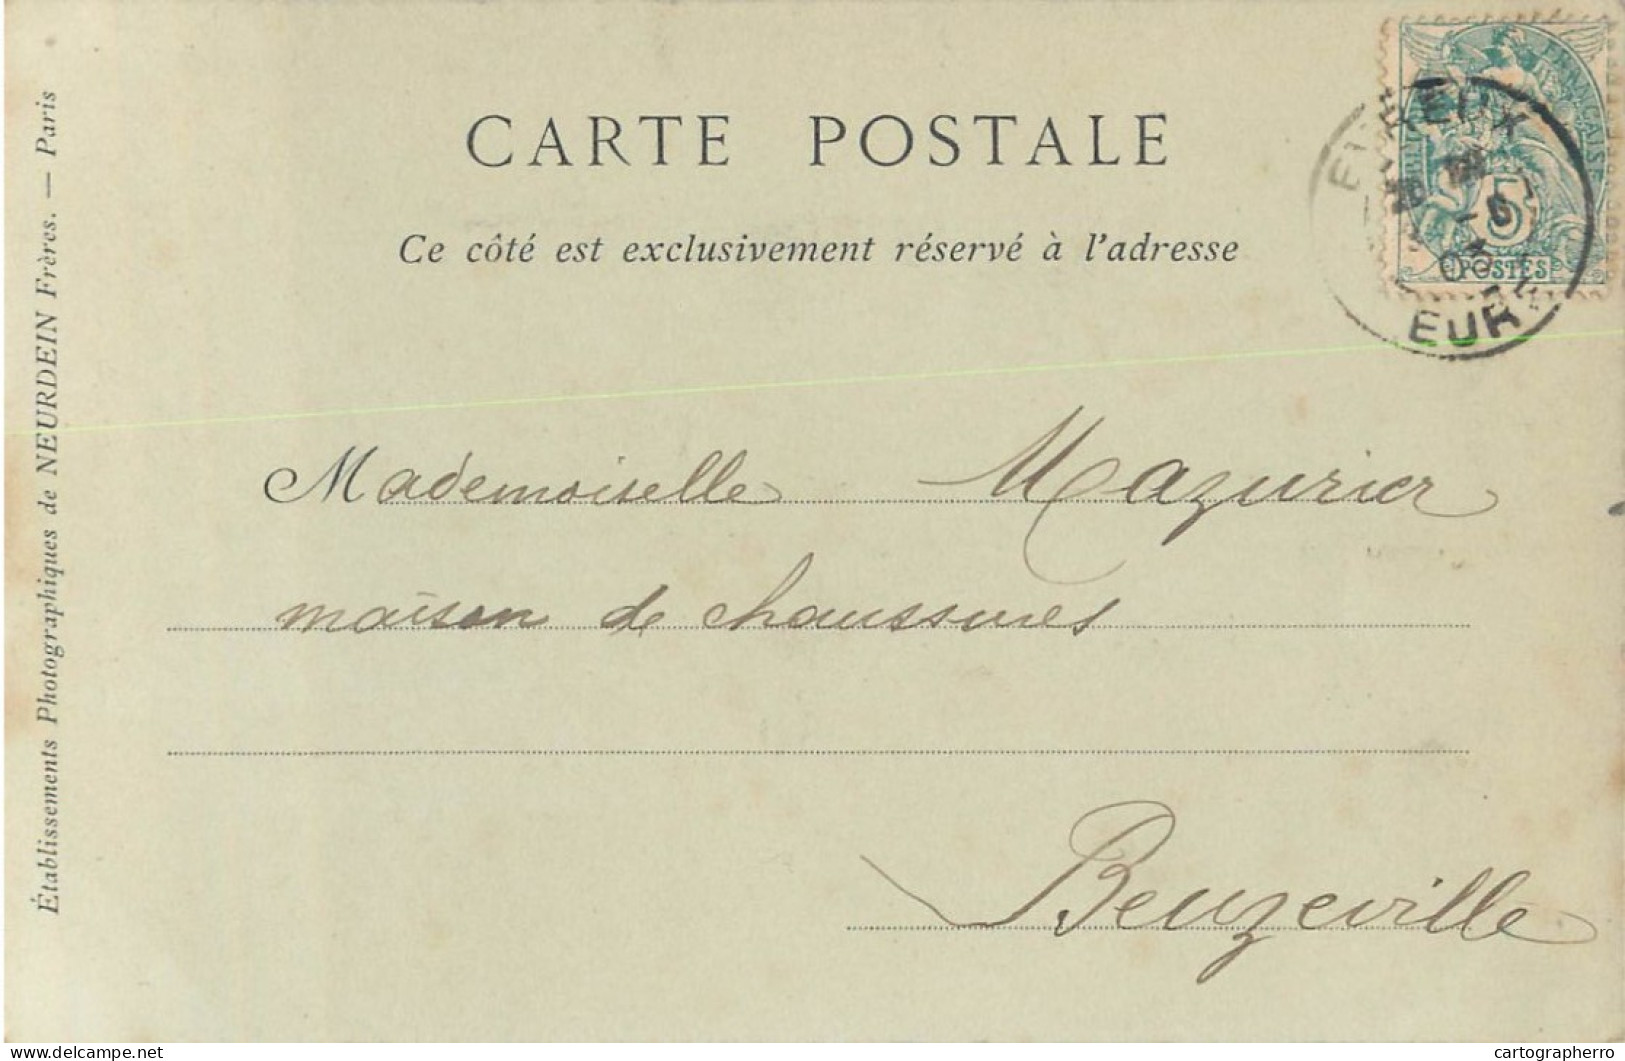 CARTE POSTALE
Ce côté est exclusivement réservé à l'adresse
RÉP FRANÇAISE
5
POSTES
EVREUX
-6
03
EURE
Mademoiselle Mazurier
maison de chaussures
Beuzeville
Établissements Photographiques de NEURDEIN Frères. — Paris
delcampe.net
cartographerro